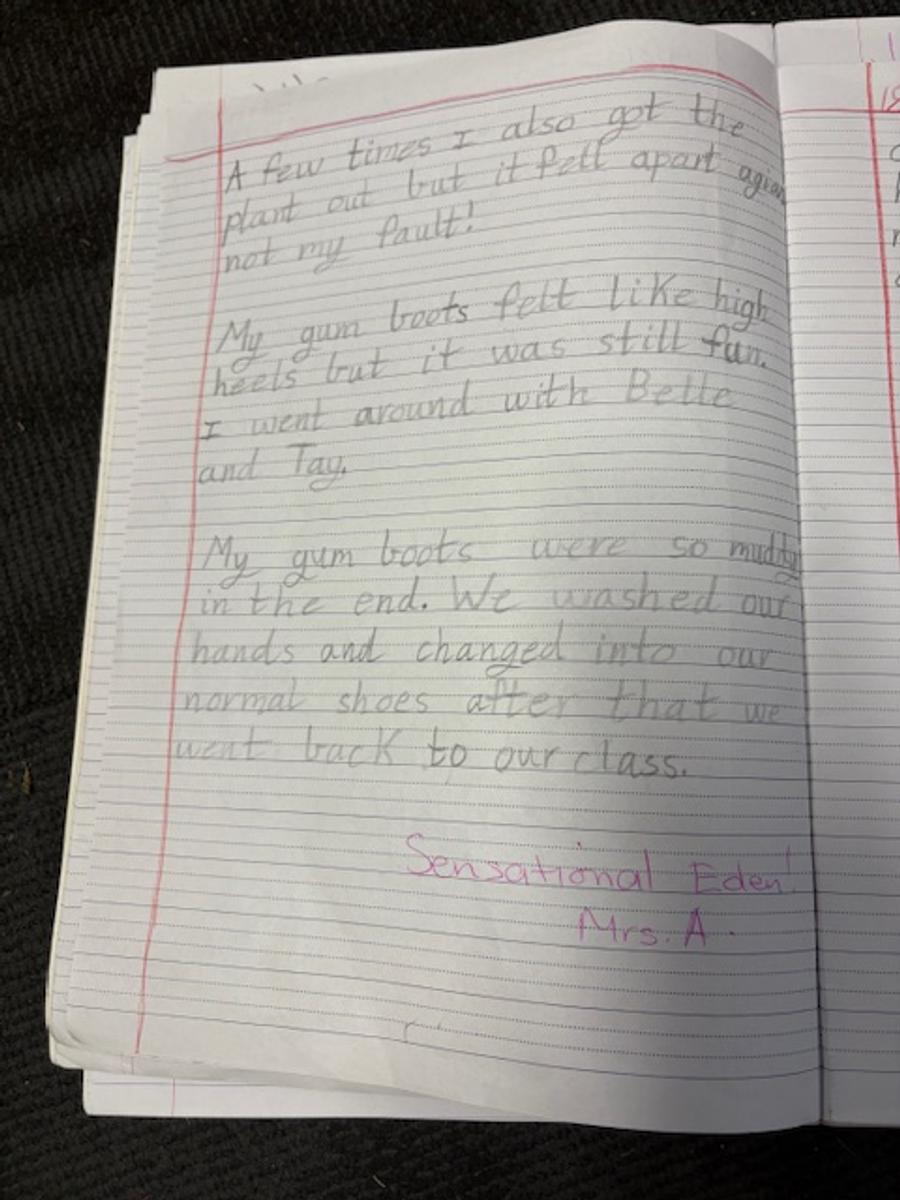 A few times I also got the
plant out but it fell apart agian
not my fault!
My gum boots felt like high
heels but it was still fun.
I went around with Belle
and Tay.
My gum boots were so muddy
in the end. We washed our
hands and changed into our
normal shoes after that we
went back to our class.
Sensational Eden!
Mrs. A.